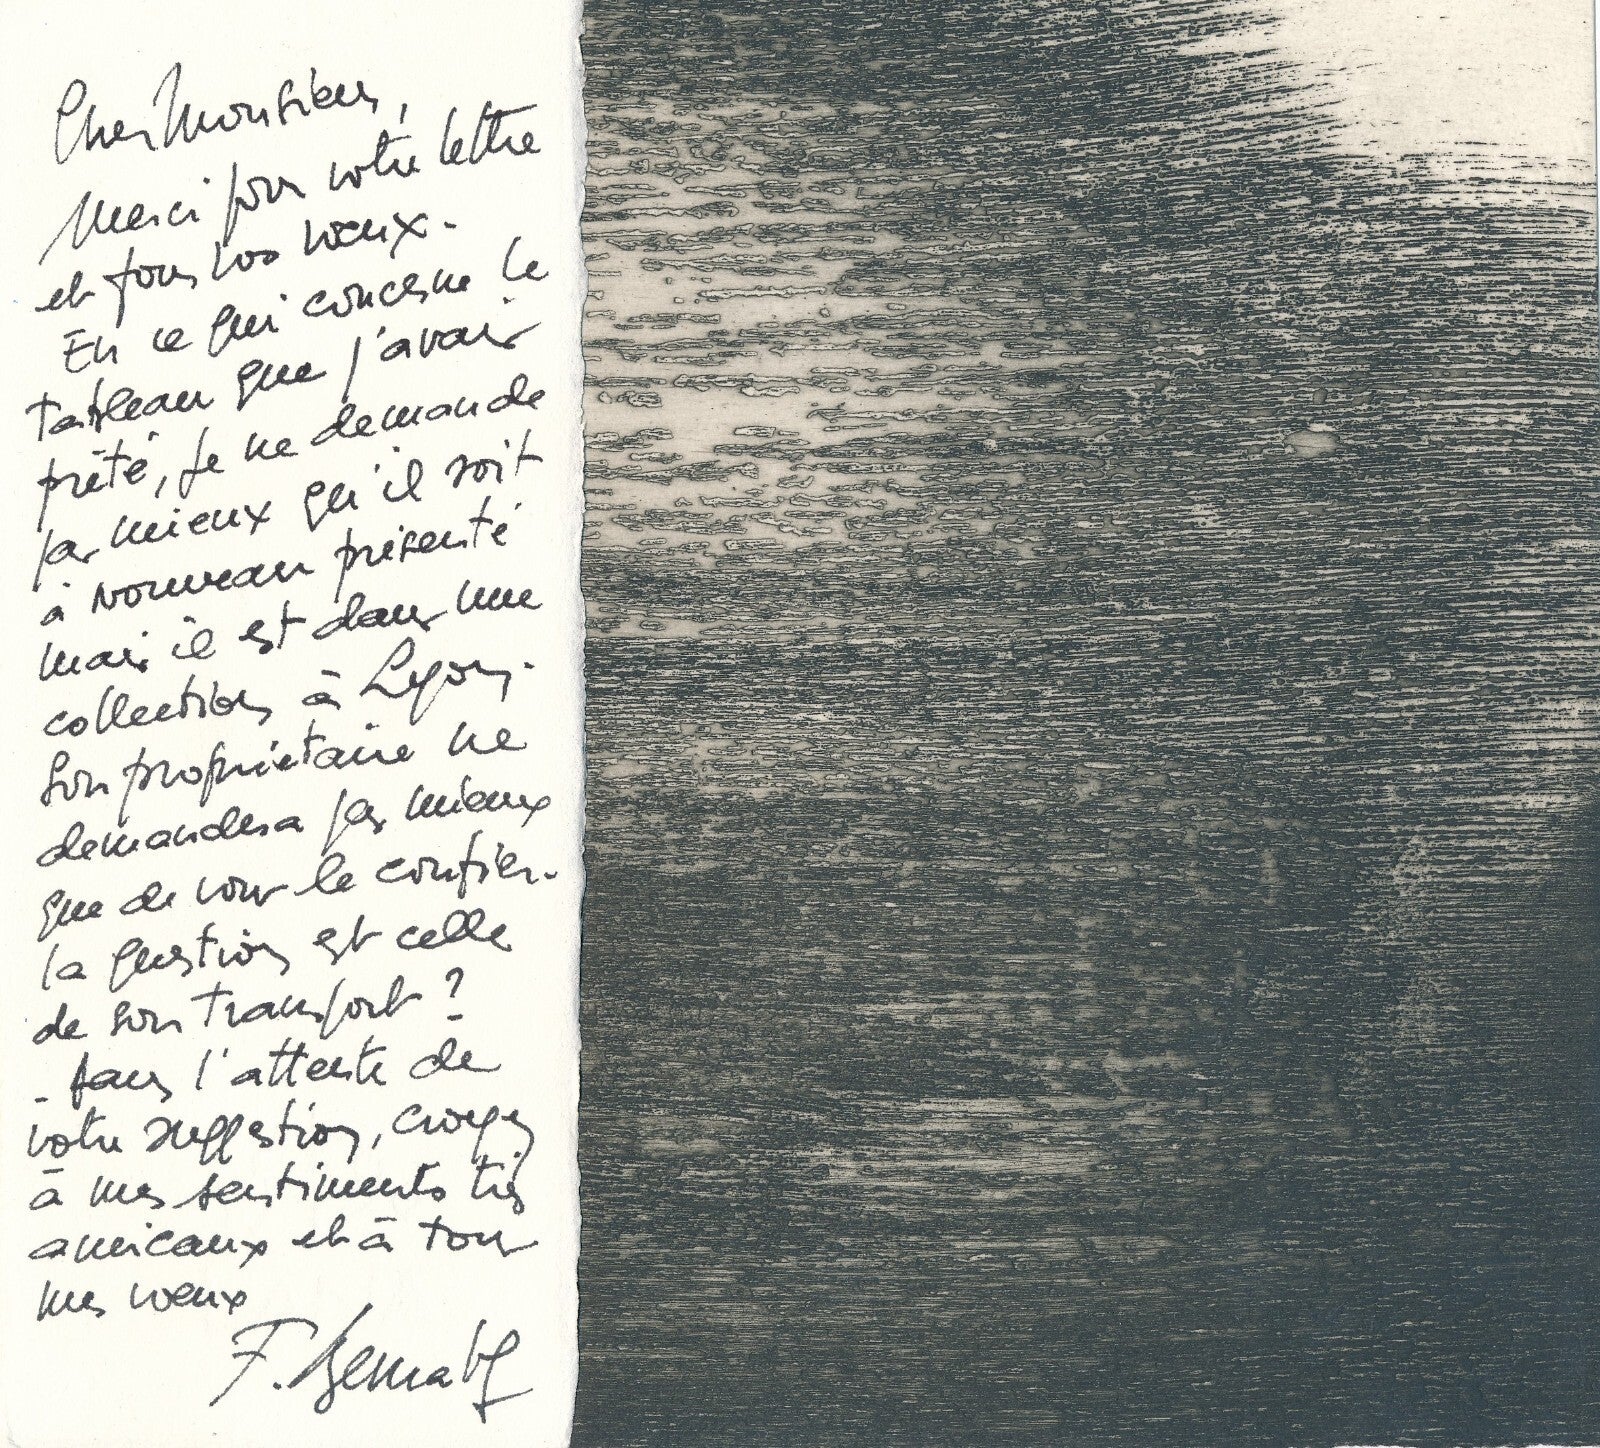 Cher Monsieur,
Merci pour votre lettre
et pour vos voeux.
En ce qui concerne le
tableau que j'avais
prêté, je ne demande
pas mieux qu'il soit
à nouveau présenté
mais il est dans une
collection à Lyon.
Son propriétaire ne
demandera pas mieux
que de vous le confier.
La question est celle
de son transport ?
- Dans l'attente de
votre suggestion, croyez
à mes sentiments très
amicaux et à tous
mes voeux
F. Benrath